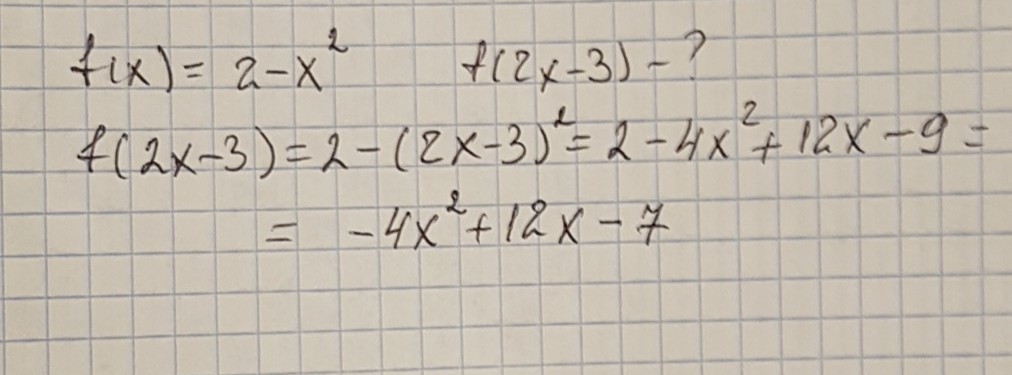 f(x) = 2 - x² f(2x-3) - ?
f(2x-3) = 2 - (2x-3)² = 2 - 4x² + 12x - 9 =
= -4x² + 12x - 7